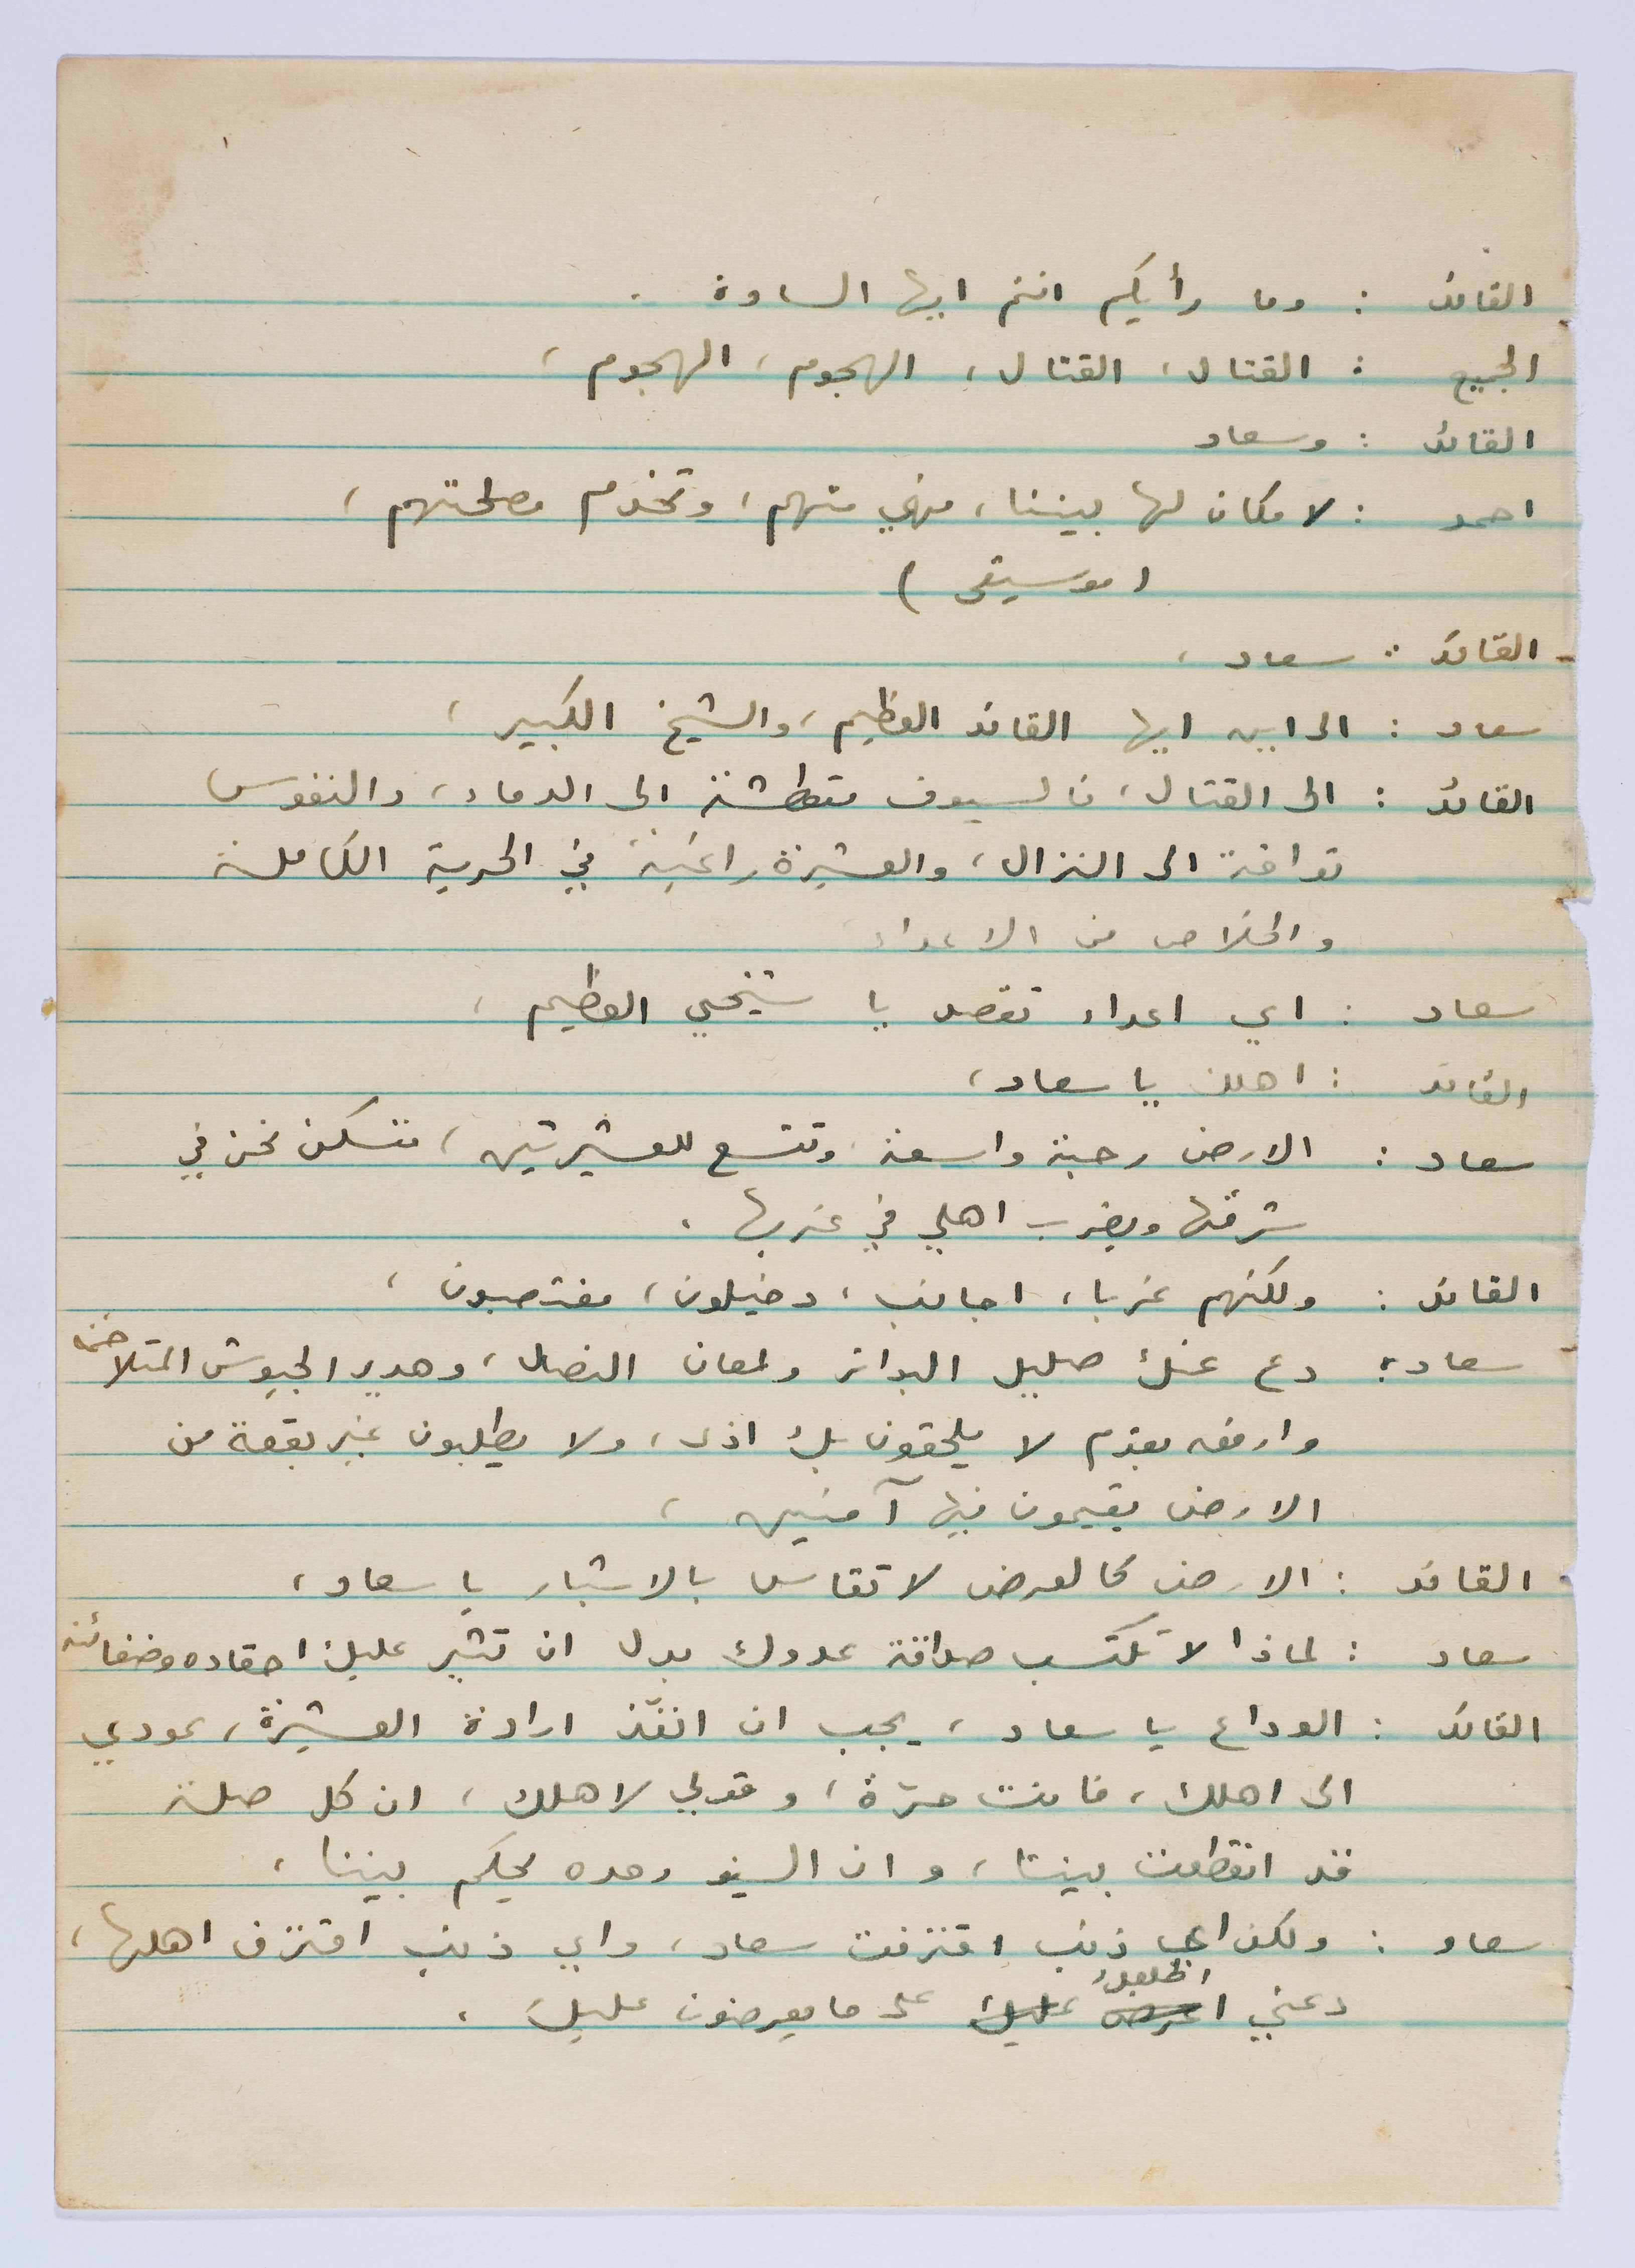 القائد : وما رأيكم انتم ايها السادة .
الجميع : القتال، القتال، الهجوم، الهجوم،
القائد : وسعاد
احمد : لا مكان لها بيننا، فهي منهم، وتخدم مصلحتهم،
( موسيقى )
القائد : سعاد،
سعاد : الى اين ايها القائد العظيم، والشيخ الكبير،
القائد : الى القتال، فالسيوف متعطشة الى الدماء، والنفوس
تواقة الى النزال، والعشيرة راغبة في الحرية الكاملة
والخلاص من الاعداء
سعاد : اي اعداء تقصد يا شيخي العظيم،
القائد : اهلك يا سعاد،
سعاد : الارض رحبة واسعة، وتتسع للعشيرتين، فنسكن نحن في
شرقها ويضرب اهلي في غربها .
القائد : ولكنهم غرباء، اجانب، دخيلون، مغتصبون،
سعاد : دع عنك صليل البواتر ولمعان النصال، وهدير الجيوش المتلاحمة
وارفعه بقوم لا يلحقون بك اذى، ولا يطلبون غير بقعة من
الارض يقيمون فيها آمنين،
القائد : الارض كالعرض لا تقاس بالاشبار يا سعاد،
سعاد : لماذا لا تكتسب صداقة عدوك بدل ان تثير عليك احقاده وضغائنه
القائد : الوداع يا سعاد، يجب ان انفّذ ارادة العشيرة، عودي
الى اهلك، فانت حرّة، وقولي لاهلك، ان كل صلة
قد انقطعت بيننا، وان السيف وحده يحكم بيننا،
سعاد : ولكن اي ذنب اقترفت سعاد، واي ذنب اقترف اهلها،
دعني اعرض عليك اطلعك على ما يعرضون عليك .